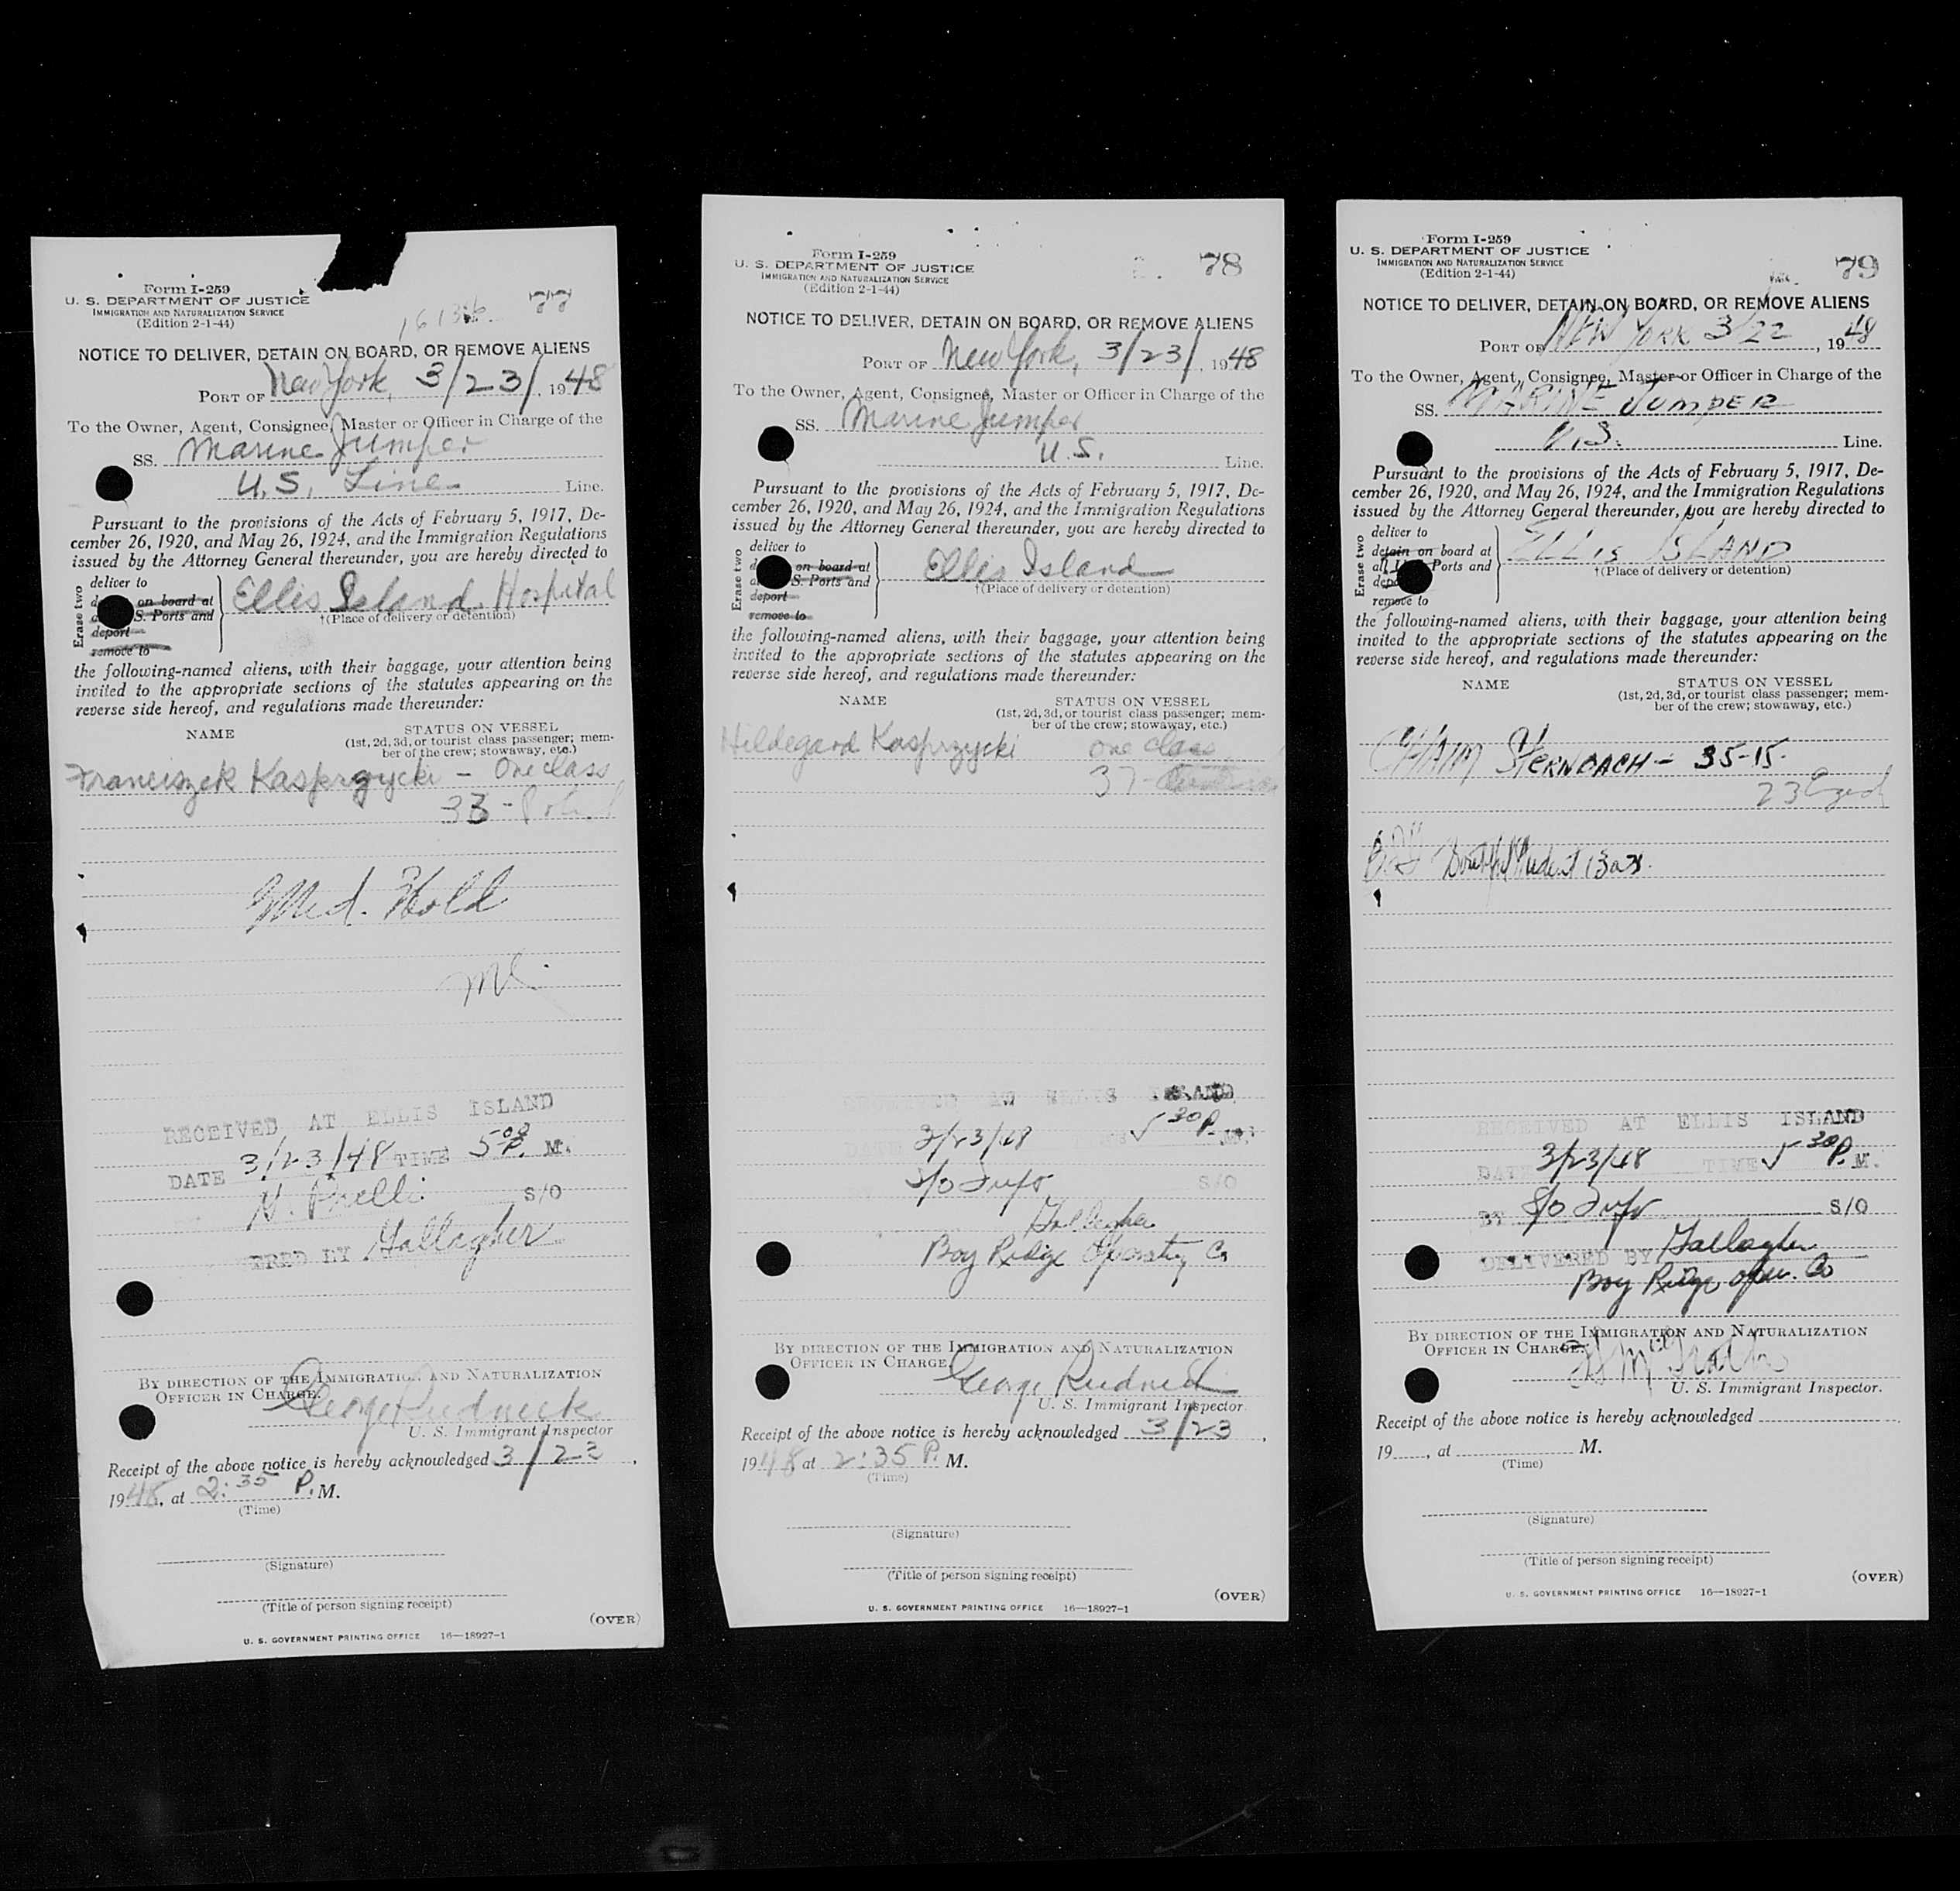 Form I-259
U. S. DEPARTMENT OF JUSTICE
IMMIGRATION AND NATURALIZATION SERVICE
(Edition 2-1-44)
77
NOTICE TO DELIVER, DETAIN ON BOARD, OR REMOVE ALIENS
PORT OF New York, 3/23/, 1948
To the Owner, Agent, Consignee, Master or Officer in Charge of the
SS. Marine Jumper
U.S. Line Line.
Pursuant to the provisions of the Acts of February 5, 1917, De-
cember 26, 1920, and May 26, 1924, and the Immigration Regulations
issued by the Attorney General thereunder, you are hereby directed to
Erase two
deliver to
on board at
S. Ports and
deport
remove to
Ellis Island Hospital
†(Place of delivery or detention)
the following-named aliens, with their baggage, your attention being
invited to the appropriate sections of the statutes appearing on the
reverse side hereof, and regulations made thereunder:
NAME STATUS ON VESSEL
(1st, 2d, 3d, or tourist class passenger; mem-
ber of the crew; stowaway, etc.)
Franciszek Kasprzycki - One class
33 -
Med. Hold
RECEIVED AT ELLIS ISLAND
DATE 3/23/48 TIME 5 00 P. M.
S/O
ERED BY Gallagher
BY DIRECTION OF THE IMMIGRATION AND NATURALIZATION
OFFICER IN CHARGE.
George Rudnick
U. S. Immigrant Inspector
Receipt of the above notice is hereby acknowledged 3/23,
1948, at 2:35 P. M.
(Time)
(Signature)
(Title of person signing receipt)
(OVER)
U. S. GOVERNMENT PRINTING OFFICE 16—18927-1
Form I-259
U. S. DEPARTMENT OF JUSTICE
IMMIGRATION AND NATURALIZATION SERVICE
(Edition 2-1-44)
78
NOTICE TO DELIVER, DETAIN ON BOARD, OR REMOVE ALIENS
PORT OF New York, 3/23/, 1948
To the Owner, Agent, Consignee, Master or Officer in Charge of the
SS. Marine Jumper
U.S. Line.
Pursuant to the provisions of the Acts of February 5, 1917, De-
cember 26, 1920, and May 26, 1924, and the Immigration Regulations
issued by the Attorney General thereunder, you are hereby directed to
Erase two
deliver to
on board at
S. Ports and
deport
remove to
Ellis Island
†(Place of delivery or detention)
the following-named aliens, with their baggage, your attention being
invited to the appropriate sections of the statutes appearing on the
reverse side hereof, and regulations made thereunder:
NAME STATUS ON VESSEL
(1st, 2d, 3d, or tourist class passenger; mem-
ber of the crew; stowaway, etc.)
Hildegard Kasprzycki one class
37 -
RECEIVED AT ELLIS ISLAND
DATE 3/23/48 5 30 P. M.
S/O
Gallagher
Bay Ridge Operating Co
BY DIRECTION OF THE IMMIGRATION AND NATURALIZATION
OFFICER IN CHARGE.
George Rudnick
U. S. Immigrant Inspector
Receipt of the above notice is hereby acknowledged 3/23,
1948 at 2:35 P. M.
(Time)
(Signature)
(Title of person signing receipt)
(OVER)
U. S. GOVERNMENT PRINTING OFFICE 16—18927-1
Form I-259
U. S. DEPARTMENT OF JUSTICE
IMMIGRATION AND NATURALIZATION SERVICE
(Edition 2-1-44)
79
NOTICE TO DELIVER, DETAIN ON BOARD, OR REMOVE ALIENS
PORT OF NEW YORK 3/22, 1948
To the Owner, Agent, Consignee, Master or Officer in Charge of the
SS. MARINE JUMPER
U.S. Line.
Pursuant to the provisions of the Acts of February 5, 1917, De-
cember 26, 1920, and May 26, 1924, and the Immigration Regulations
issued by the Attorney General thereunder, you are hereby directed to
Erase two
deliver to
detain on board at
all Ports and
remove to
ELLIS ISLAND
†(Place of delivery or detention)
the following-named aliens, with their baggage, your attention being
invited to the appropriate sections of the statutes appearing on the
reverse side hereof, and regulations made thereunder:
NAME STATUS ON VESSEL
(1st, 2d, 3d, or tourist class passenger; mem-
ber of the crew; stowaway, etc.)
CHAIM STERNBACH - 35-15.
23 Czech
RECEIVED AT ELLIS ISLAND
DATE 3/23/48 TIME 5 30 P. M.
BY S/O S/O
DELIVERED BY Gallagher
Bay Ridge Oper. Co
BY DIRECTION OF THE IMMIGRATION AND NATURALIZATION
OFFICER IN CHARGE.
U. S. Immigrant Inspector.
Receipt of the above notice is hereby acknowledged
19, at M.
(Time)
(Signature)
(Title of person signing receipt)
(OVER)
U. S. GOVERNMENT PRINTING OFFICE 16—18927-1